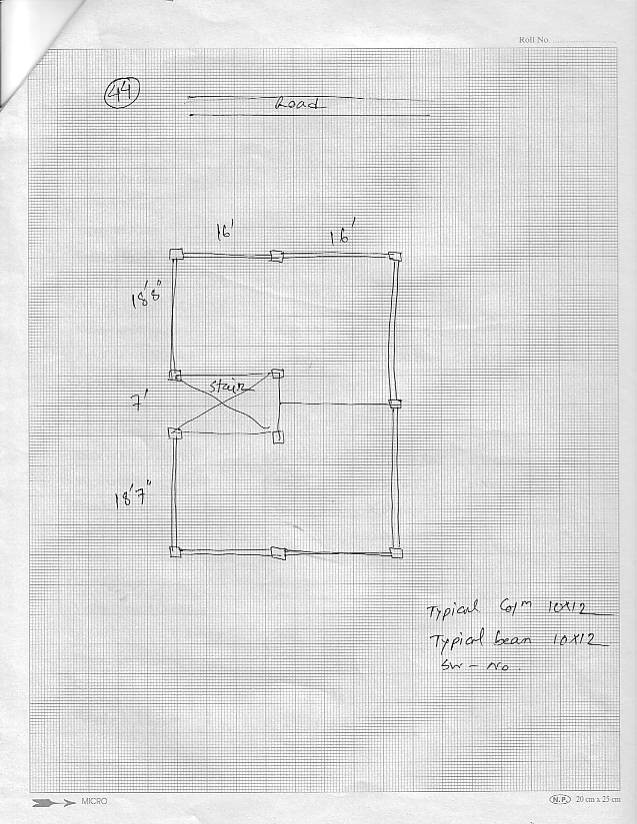 Roll No.
44
Road
16' 16'
18'8"
stair
7'
18'7"
Typical Colm 10x12
Typical beam 10x12
SW - No.
MICRO
N.P. 20 cm x 25 cm